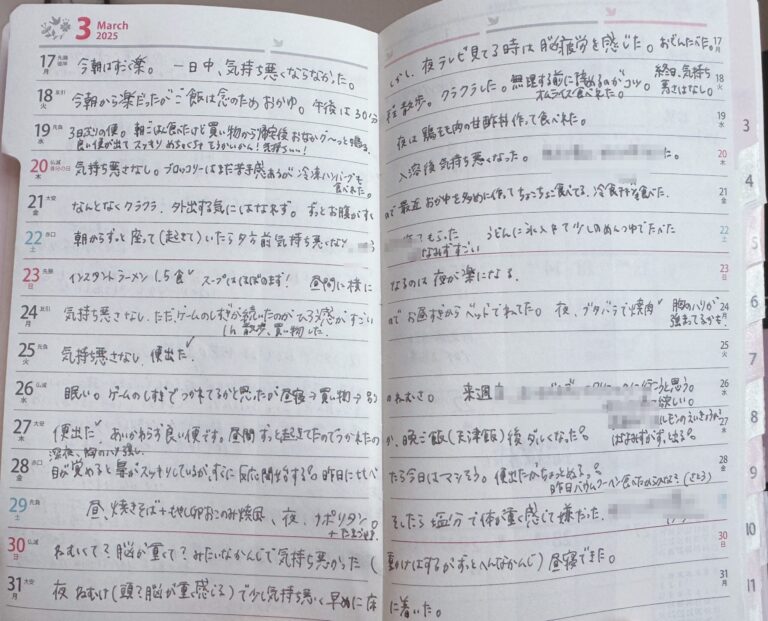 3 March
2025
17 月 先勝 彼岸 今朝はすごく楽。 一日中、気持ち悪くならなかった。
18 火 友引 今朝から楽だったがご飯は念のためおかゆ。午後は30分
19 水 先負 3日ぶりの便。朝ごはん食べたけど買い物から帰宅後おなかグ〜っと鳴る。
良い便が出てスッキリ めちゃくちゃ 気持ちいい!
20 木 仏滅 春分の日 気持ち悪さなし。ブロッコリーはまだ苦手感あるが冷凍ハンバーグも
食べれた。
21 金 大安 なんとなくクラクラ。外出する気にはなれず。ずっとお腹がすく
22 土 赤口 朝からずっと座って(起きて)いたら夕方前気持ち悪くなり
23 日 先勝 インスタントラーメン1.5食 スープはほぼのまず! 昼間に横に
24 月 友引 気持ち悪さなし。ただ、ゲームのしすぎが続いたのかひろう感がすごい
1h 散歩、買い物した。
25 火 先負 気持ち悪さなし。便出た
26 水 仏滅 眠い。ゲームのしすぎでつかれてるかと思ったが昼寝→買い物→
27 木 大安 便出た あいかわらず良い便です。昼間ずっと起きてたのでつかれたの
深夜、胸のハリ強い。
28 金 赤口 目が覚めると鼻がスッキリしているが、すぐに反応開始する。昨日に比べ
29 土 先負 昼、焼きそば+もやし卵おこのみ焼風、夜、ナポリタン。
+たまご
30 日 仏滅 ねむくて?脳が重くて?みたいなかんじで気持ち悪かった(
31 月 大安 夜 ねむけ(頭?脳が重く感じる)で少し気持ち悪く早めに床
しかし、夜テレビ見てる時は脳疲労を感じた。おでんたべた。 17 月
程散歩。クラクラした。無理する前に諦めるのがコツ。 終日、気持ち 18 火
オムライス食べれた。 悪さはなし。
夜は鶏もも肉の甘酢丼作って食べれた。 19 水
入浴後気持ち悪くなった。 た。 20 木
ので最近 おかゆを多めに作ってちょこちょこ食べてる。冷食 食べた。 21 金
てもらった うどんに氷入れて少しのめんつゆでたべた 22 土
なみすすごい
なるのは夜が楽になる。 23 日
ので お昼すぎからベッドでねてた。夜、ブタバラで焼肉 胸のハリが 24 月
強まってるかも?
25 火
のねむさ。 来週 行こうと思う。 26 水
欲しい。
か、晩ご飯(天津飯)後ダルくなった。 ルモンのえいきょうか? 27 木
はなみずがずっと出る。
たら今日はマシそう。便出たがちょっとぬる。 28 金
昨日バウムクーヘン食べたからかな?(さとう)
そしたら塩分で体が重く感じて嫌だった。
動けはするがずっとへんなかんじ)昼寝できた。 30 日
に着いた。 31 月
3
4
5
6
7
8
9
10
11